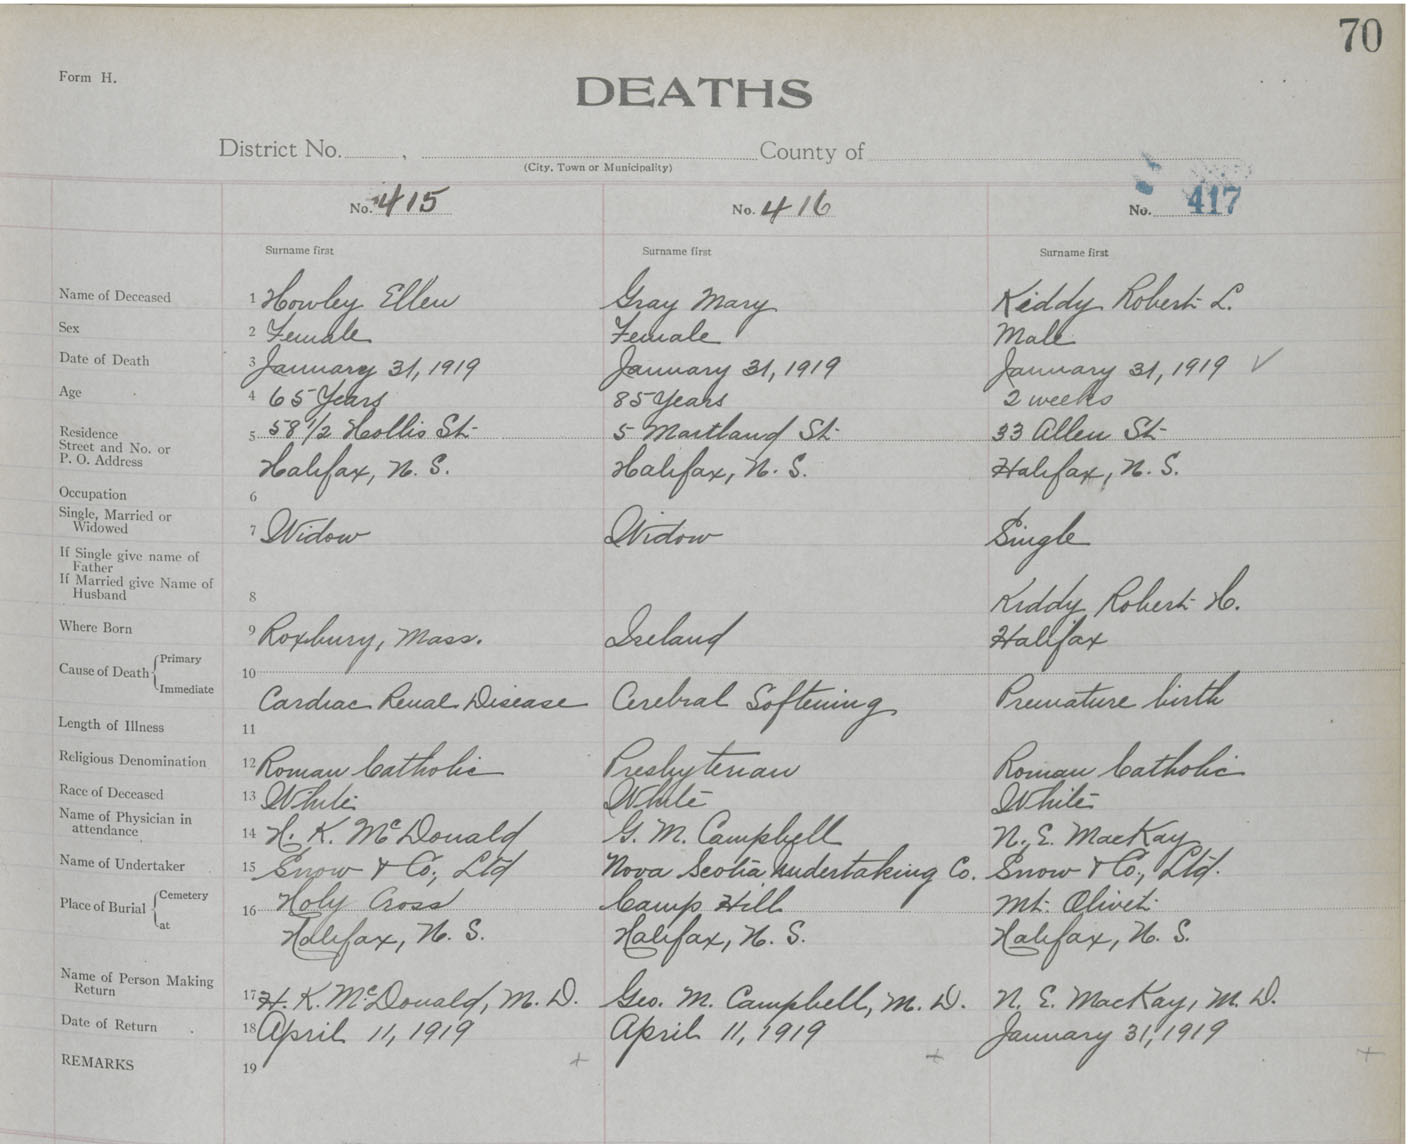 70
Form H.
DEATHS
District No. , County of
(City, Town or Municipality)
No. 415 No. 416 No. 417
Surname first Surname first Surname first
Name of Deceased 1 Howley Ellen Gray Mary Kiddy Robert L.
Sex 2 Female Female Male
Date of Death 3 January 31, 1919 January 31, 1919 January 31, 1919 ✓
Age 4 65 Years 85 Years 2 weeks
Residence
Street and No. or 5 58 1/2 Hollis St 5 Maitland St 33 Allen St
P. O. Address Halifax, N. S. Halifax, N. S. Halifax, N. S.
Occupation 6
Single, Married or
Widowed 7 Widow Widow Single
If Single give name of
Father
If Married give Name of
Husband 8 Kiddy Robert H.
Where Born 9 Roxbury, Mass. Ireland Halifax
Cause of Death Primary 10
Immediate Cardiac Renal Disease Cerebral Softening Premature birth
Length of Illness 11
Religious Denomination 12 Roman Catholic Presbyterian Roman Catholic
Race of Deceased 13 White White White
Name of Physician in
attendance 14 H. K. McDonald G. M. Campbell N. E. MacKay
Name of Undertaker 15 Snow & Co., Ltd Nova Scotia Undertaking Co. Snow & Co., Ltd.
Place of Burial Cemetery 16 Holy Cross Camp Hill Mt. Olivet
at Halifax, N. S. Halifax, N. S. Halifax, N. S.
Name of Person Making
Return 17 H. K. McDonald, M. D. Geo. M. Campbell, M. D. N. E. MacKay, M. D.
Date of Return 18 April 11, 1919 April 11, 1919 January 31, 1919
REMARKS 19 + + +